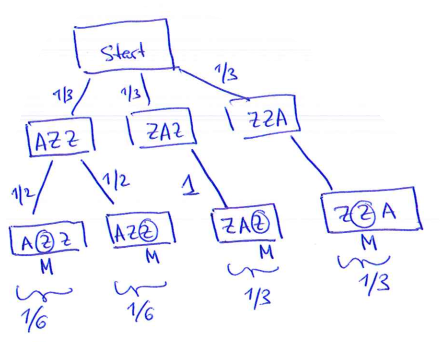 Start
1/3 1/3 1/3
AZZ ZAZ ZZA
1/2 1/2 1
AZZ AZZ ZAZ ZZA
M M M M
1/6 1/6 1/3 1/3